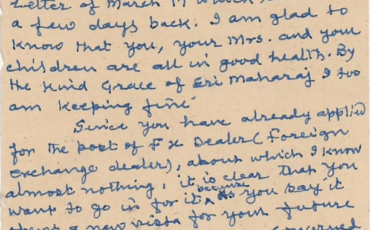 Letter of March 17 which
a few days back. I am glad to
know that you, your Mrs. and your
children are all in good health. By
the Kind Grace of Sri Maharaj I too
am keeping fine.
Since you have already applied
for the post of F X Dealer (Foreign
exchange dealer), about which I know
almost nothing, it is clear that you
want to go in for it because as you say it
a new vista for your future
concerned